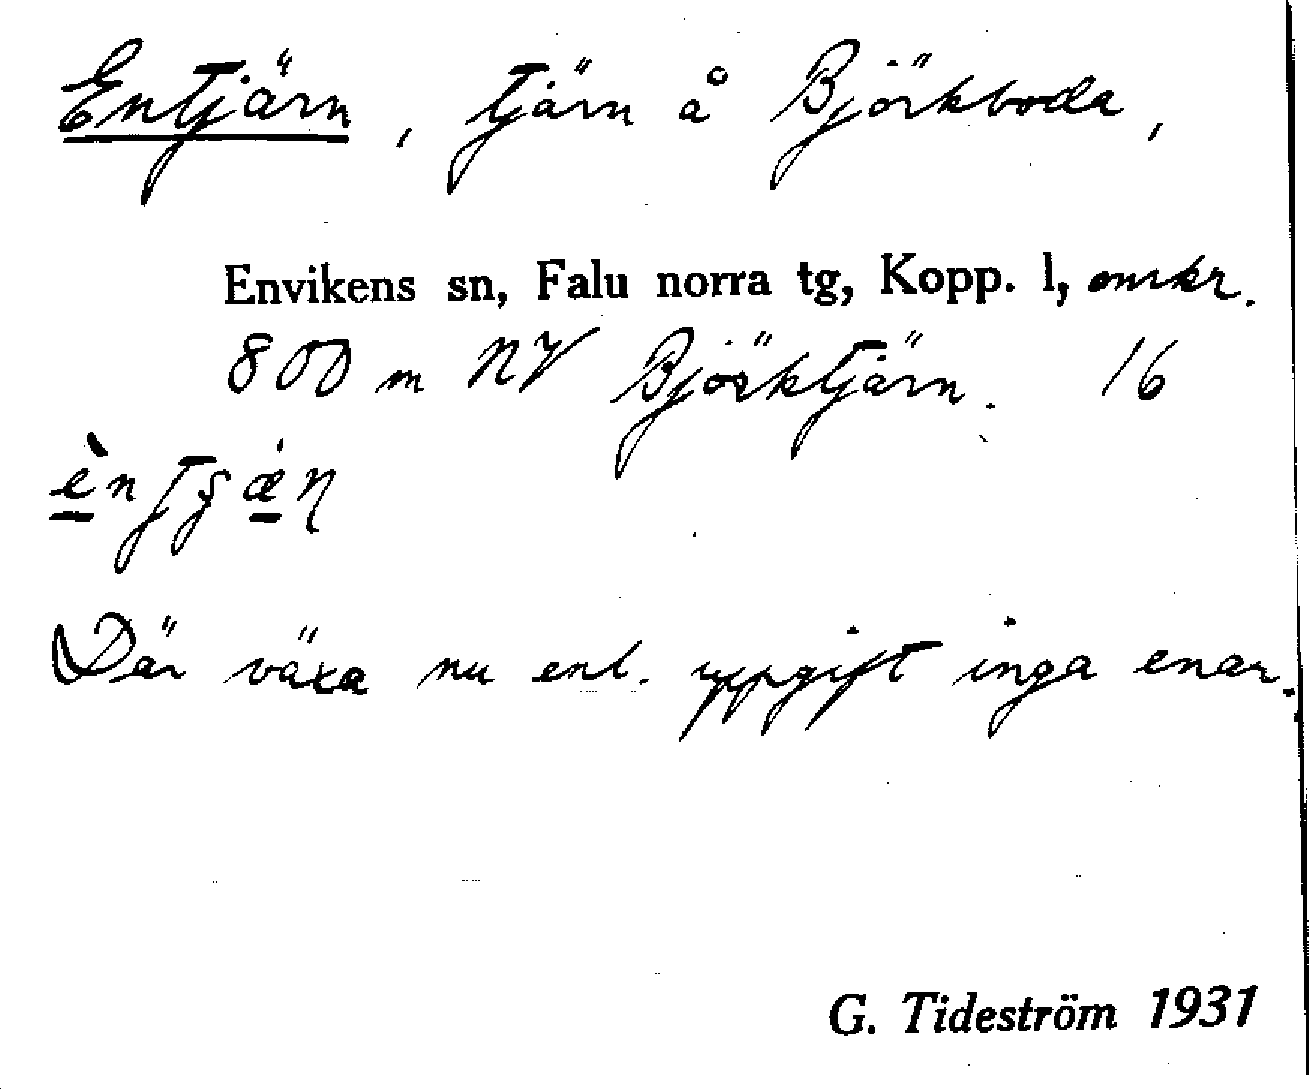 Entjärn, tjärn å Björkboda,
Envikens sn, Falu norra tg, Kopp. l, omkr.
800 m NV Björktjärn. 16
Där växa nu enl. uppgift inga enar.
G. Tideström 1931